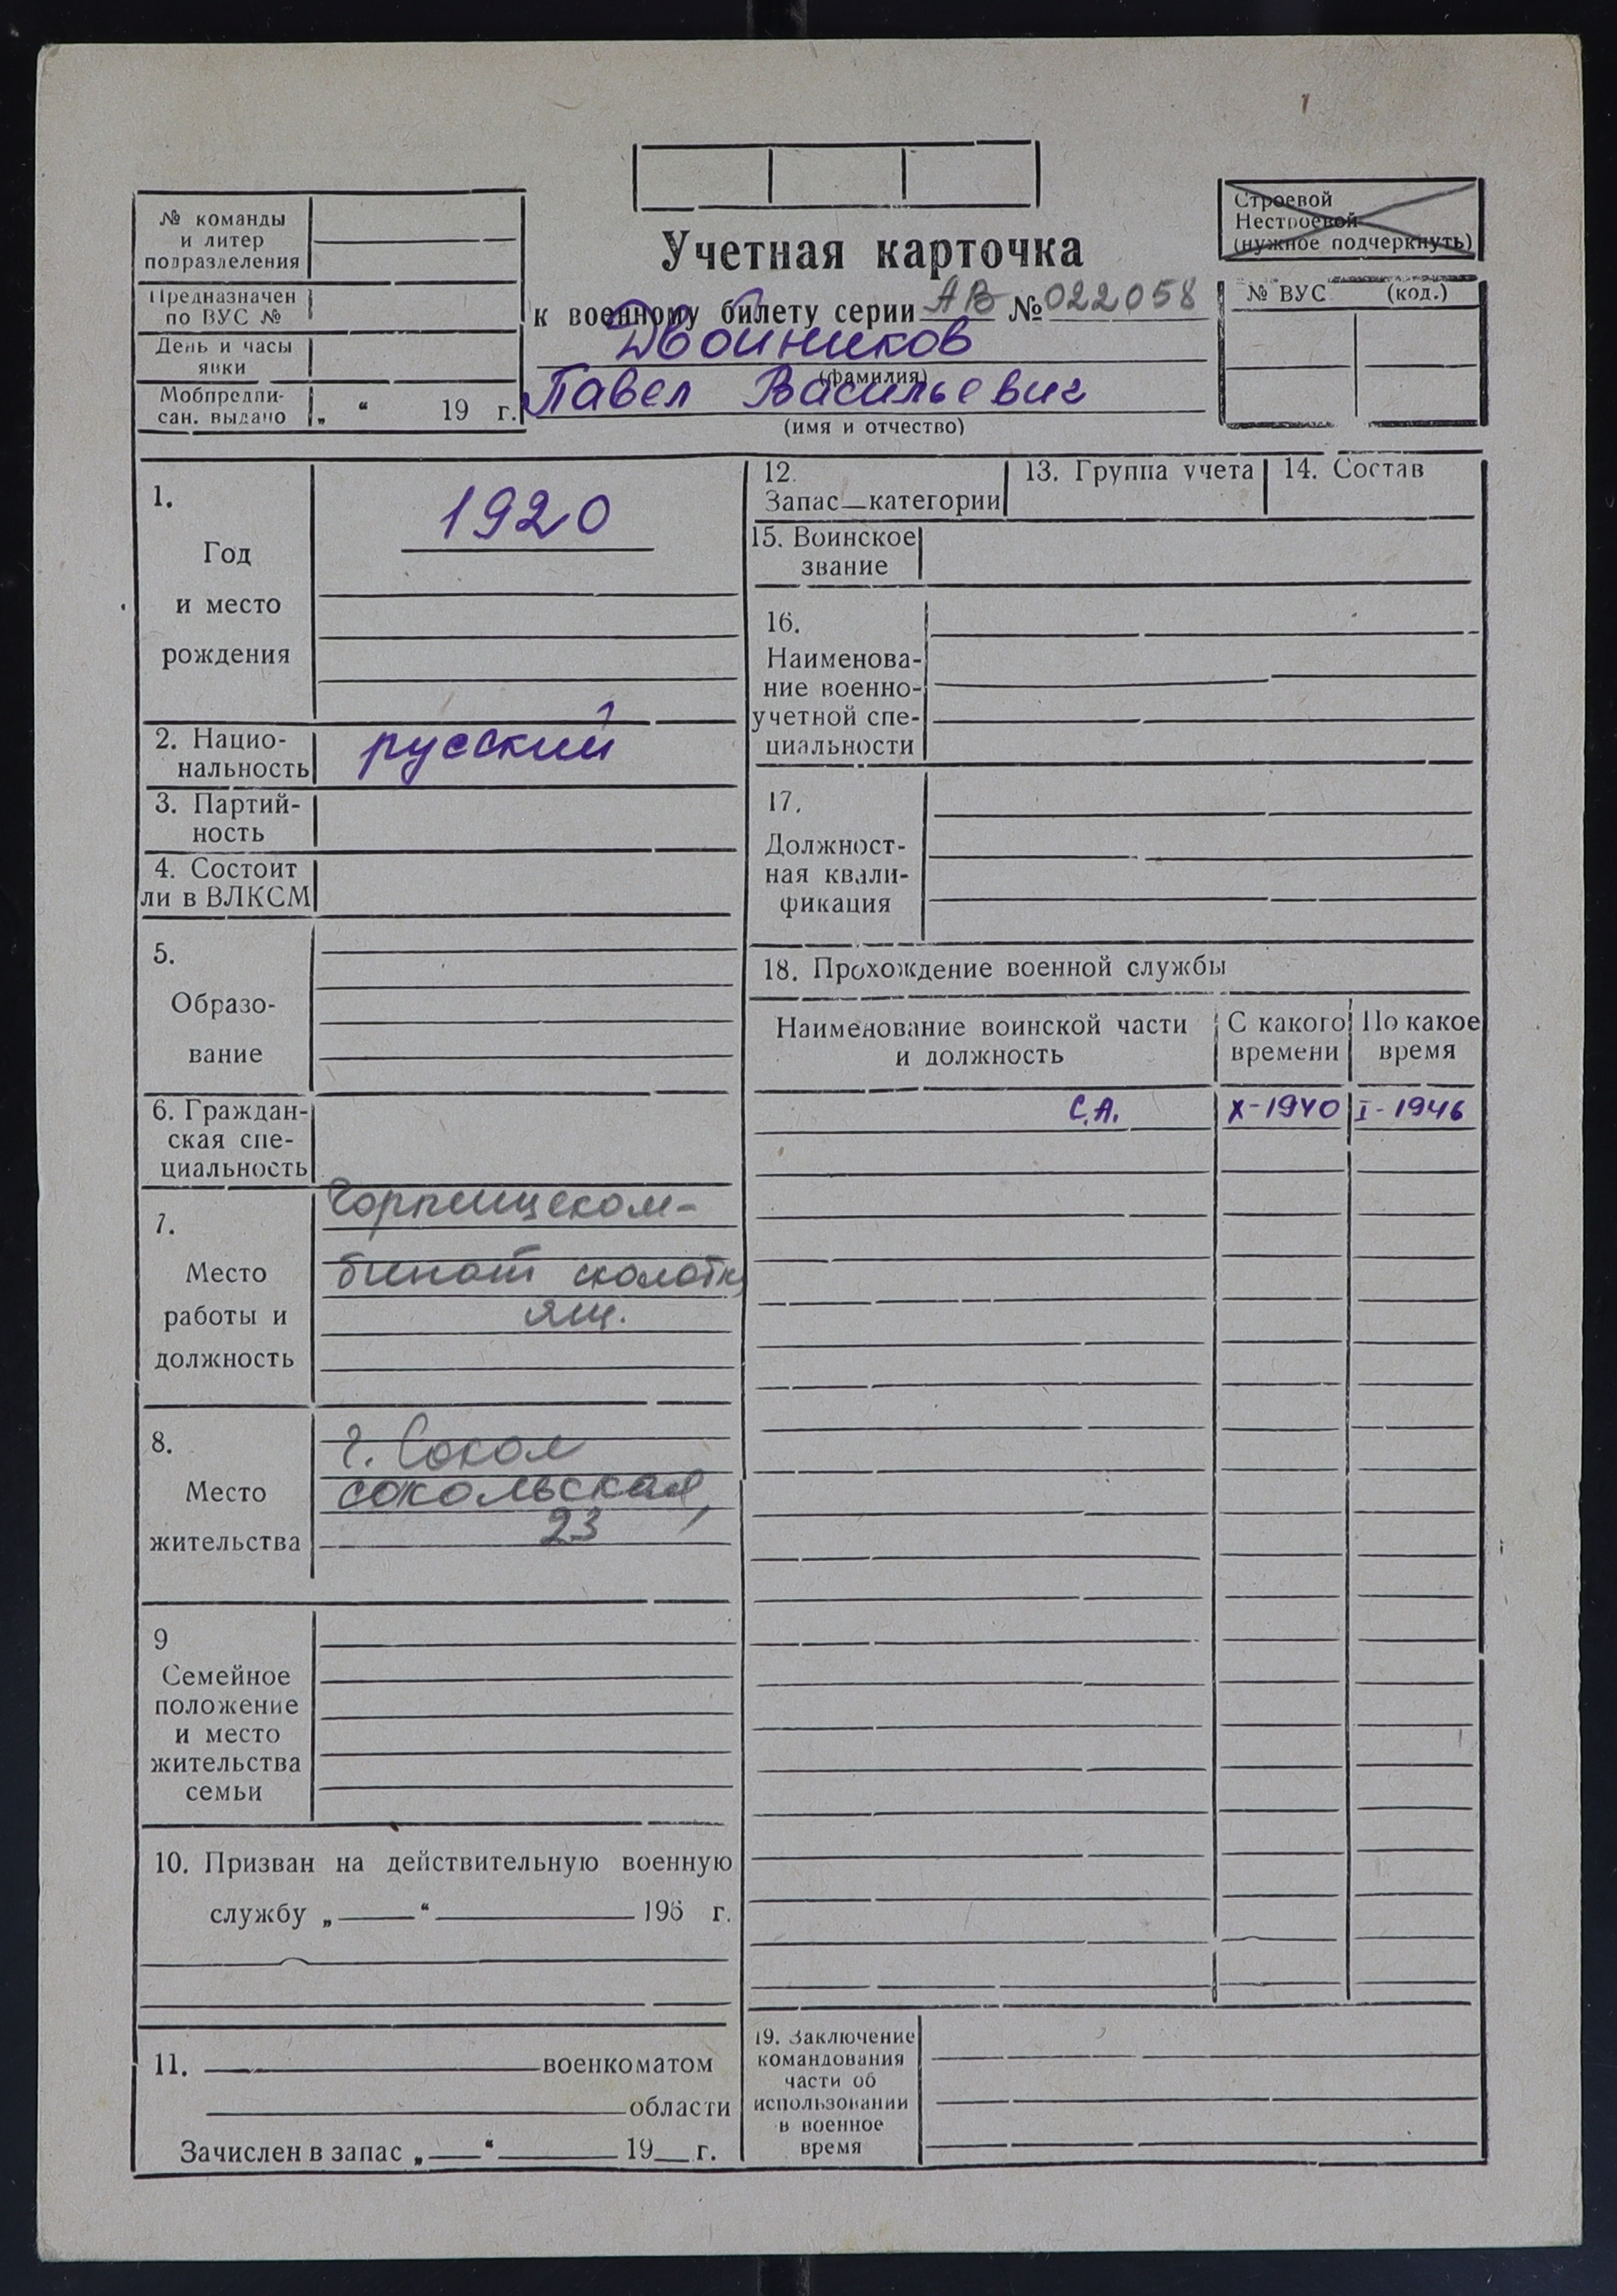 Строевой
Нестроевой
(нужное подчеркнуть)
№ команды
и литер
подразделения
Предназначен
по ВУС №
День и часы
явки
Мобпредпи-
сан. выдано „ “ 19 г.
Учетная карточка
к военному билету серии АВ № 022058
Двойников
(фамилия)
Павел Васильевич
(имя и отчество)
№ ВУС (код.)
1.
Год
и место
рождения
1920
2. Нацио-
нальность
русский
3. Партий-
ность
4. Состоит
ли в ВЛКСМ
5.
Образо-
вание
6. Граждан-
ская спе-
циальность
7.
Место
работы и
должность
Горпищеком-
бинат сколотк
ящ.
8.
Место
жительства
г. Сокол
сокольская,
23
9
Семейное
положение
и место
жительства
семьи
10. Призван на действительную военную
службу „ “ 195 г.
11. военкоматом
области
Зачислен в запас „ “ 19 г.
12.
Запас—категории
13. Группа учета
14. Состав
15. Воинское
звание
16.
Наименова-
ние военно-
учетной спе-
циальности
17.
Должност-
ная квали-
фикация
18. Прохождение военной службы
Наименование воинской части
и должность
С какого
времени
По какое
время
С.А. X-1940 I-1946
19. Заключение
командования
части об
использовании
в военное
время